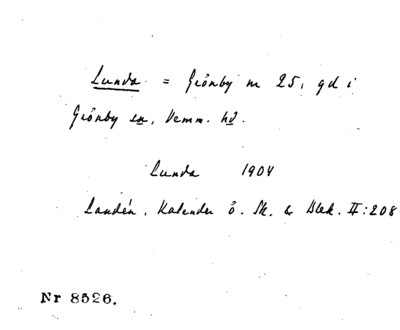 Lunda = Grönby nr 25, gd i
Grönby sn, Vemm. hd.
Lunda 1904
Landén, Kalender ö. Sk. & Blek. II:208
Nr 8526.